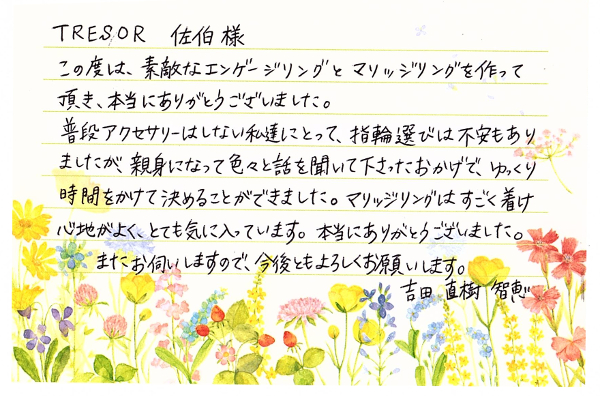 TRESOR 佐伯様
この度は、素敵なエンゲージリングとマリッジリングを作って
頂き、本当にありがとうございました。
普段アクセサリーはしない私達にとって、指輪選びは不安もあり
ましたが、親身になって色々と話を聞いて下さったおかげで、ゆっくり
時間をかけて決めることができました。マリッジリングはすごく着け
心地がよく、とても気に入っています。本当にありがとうございました。
またお伺いしますので、今後ともよろしくお願いします。
吉田 直樹 智恵